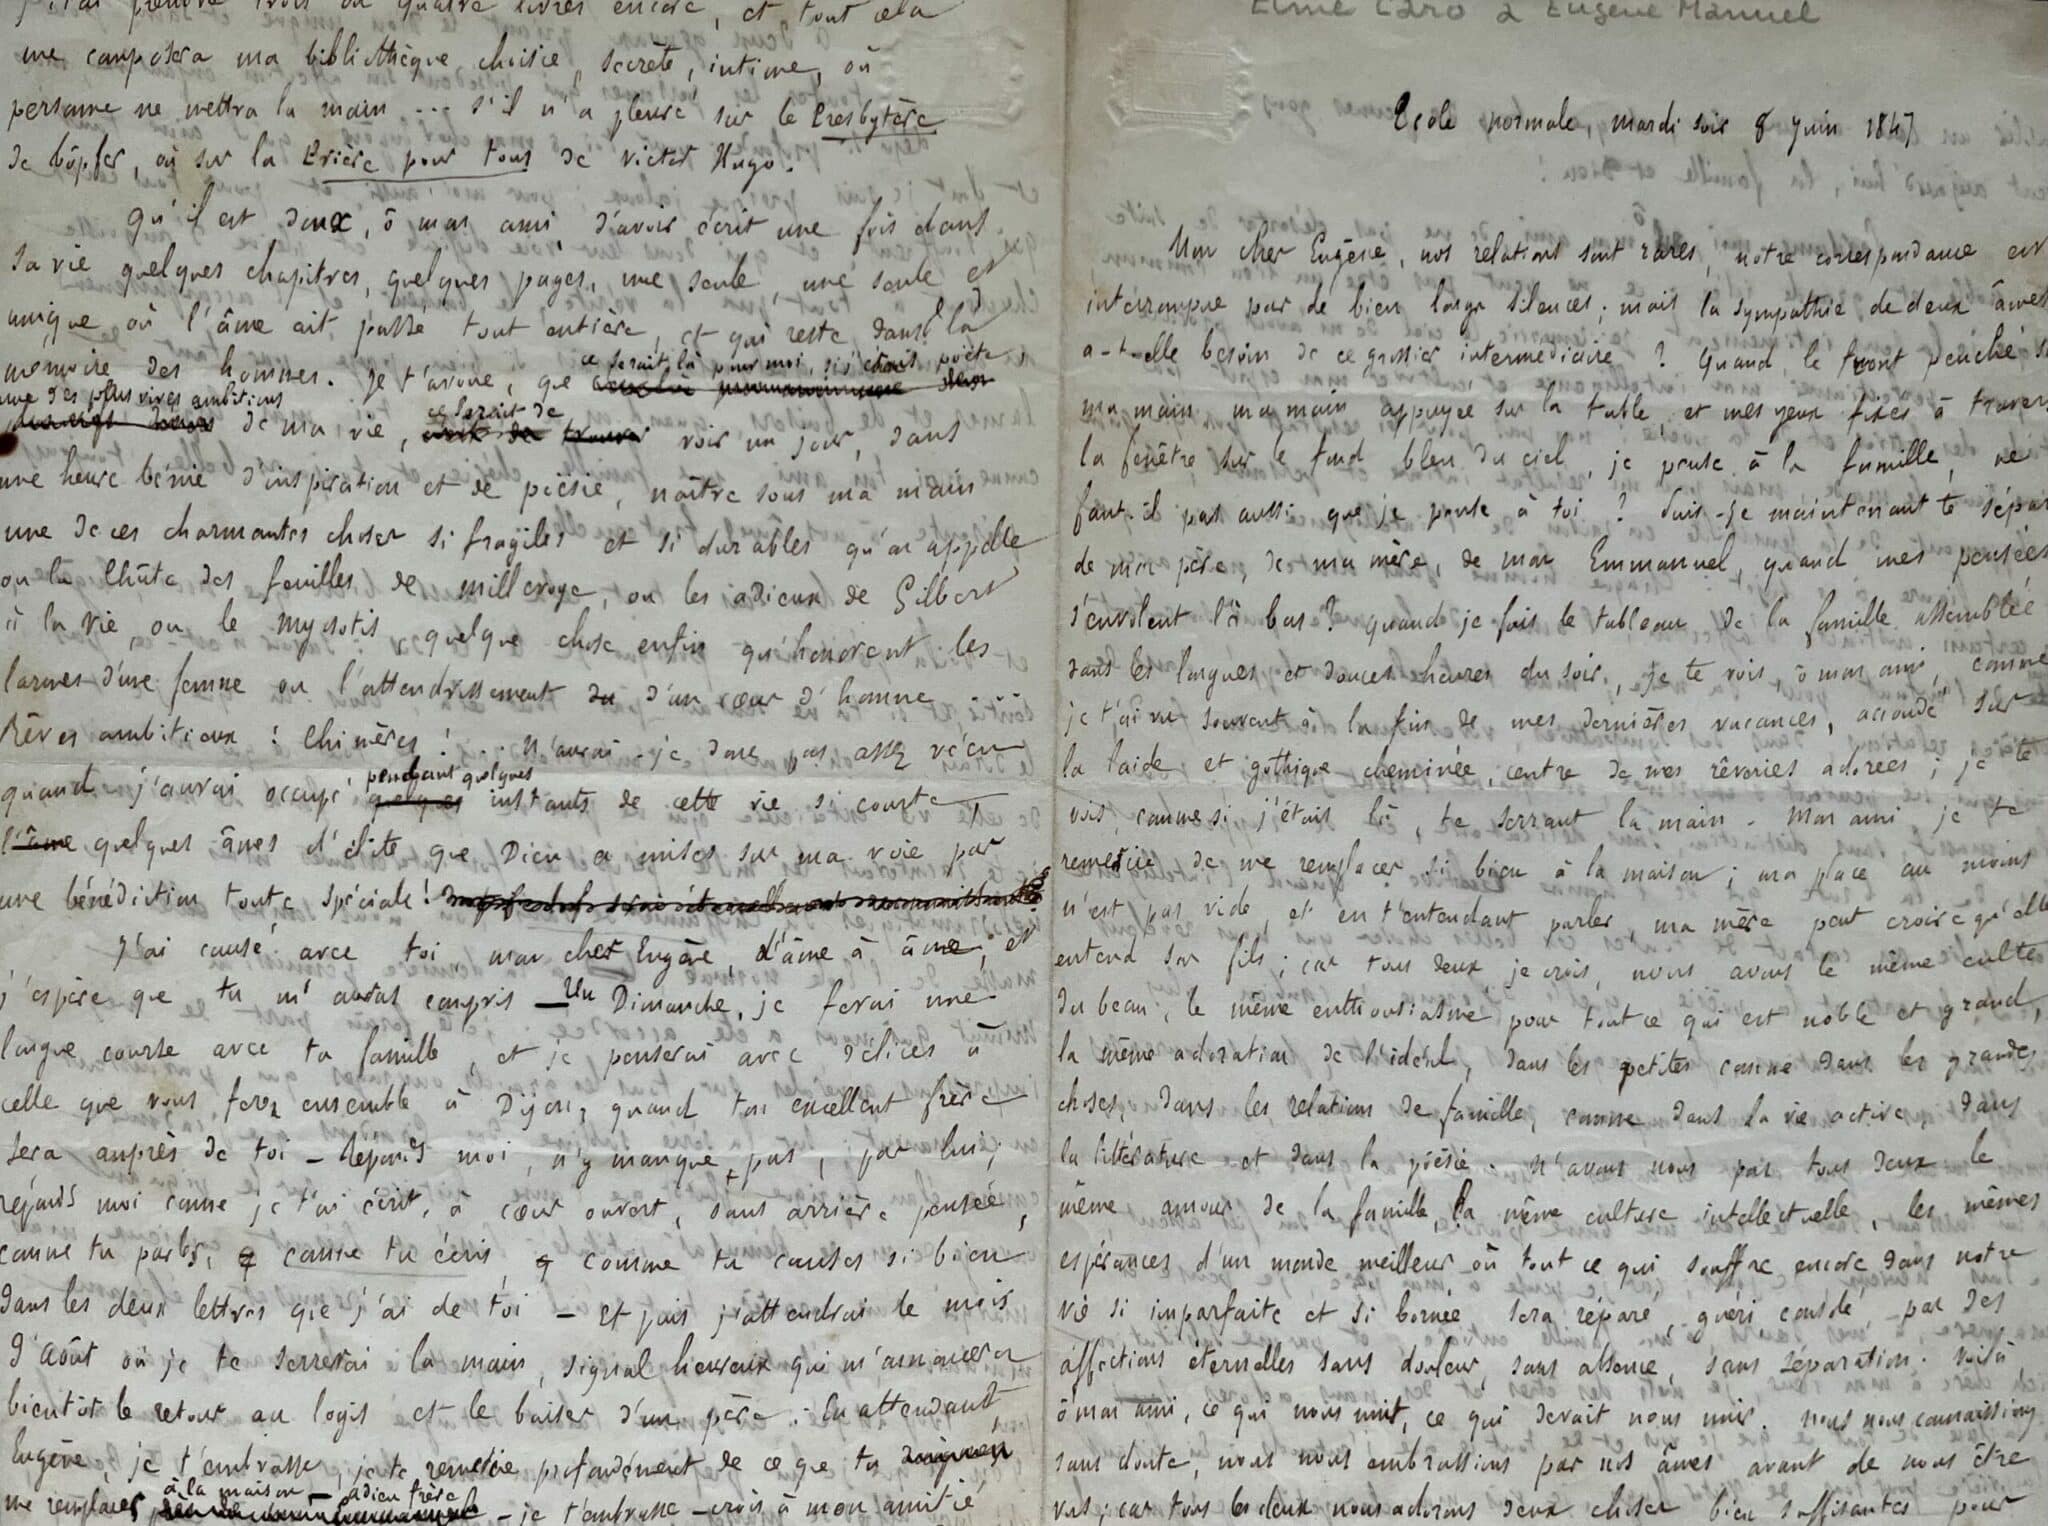 j'irai prendre trois ou quatre livres encore, et tout cela
me composera ma bibliothèque choisie, secrète, intime, où
personne ne mettra la main ... s'il n'a pleuré sur le Presbytère
de Töpfer, où sur la Prière pour tous de Victor Hugo.
Qu'il est doux, ô mon ami, d'avoir écrit une fois dans
sa vie quelques chapitres, quelques pages, une seule, une seule et
unique où l'âme ait passé tout entière, et qui reste dans la
mémoire des hommes. Je t'avoue, que ce serait là pour moi, si j'étais poète,
une des plus vives ambitions
de ma vie, ce serait de trouver voir un jour, dans
une heure bénie d'inspiration et de poësie, naître sous ma main
une de ces charmantes choses si fragiles et si durables qu'on appelle
ou la Chûte des feuilles de Millevoye, ou les adieux de Gilbert
à la vie, ou le Myosotis, quelque chose enfin qu'honorent les
larmes d'une femme ou l'attendrissement du d'un cœur d'homme ....
Rêves ambitieux ! Chimères ! ... N'aurai-je donc pas assez vécu
quand j'aurai occupé pendant quelques quelques instants de cette vie si courte,
l'âme quelques âmes d'élite que Dieu a mises sur ma voie par
une bénédiction toute spéciale !
J'ai causé avec toi, mon cher Eugène, d'âme à âme, et
j'espère que tu m'auras compris — Un Dimanche, je ferai une
longue course avec ta famille, et je penserai avec délices à
celle que vous ferez ensemble à Dijon, quand ton excellent frère
sera auprès de toi — Réponds moi, n'y manque pas, par lui ;
réponds moi comme je t'ai écrit, à cœur ouvert, sans arrière pensée,
comme tu parles, comme tu écris, comme tu causes si bien
dans les deux lettres que j'ai de toi — Et puis j'attendrai le mois
d'Août où je te serrerai la main, signal heureux qui m'annoncera
bientôt le retour au logis et le baiser d'un père. En attendant,
Eugène, je t'embrasse, je te remercie profondément de ce que tu
me remplaces à la maison, — adieu frère — je t'embrasse — crois à mon amitié
Elme Caro à Eugène Manuel
Ecole normale, mardi soir 8 juin 1847
Mon cher Eugène, nos relations sont rares, notre correspondance est
interrompue par de bien longs silences ; mais la sympathie de deux âmes
a-t-elle besoin de ce grossier intermédiaire ? Quand, le front penché
ma main, ma main appuyée sur la table, et mes yeux fixés à travers
la fenêtre sur le fond bleu du ciel, je pense à la famille, ne
faut-il pas aussi que je pense à toi ? Puis-je maintenant te
de mon père, de ma mère, de mon Emmanuel, quand mes pensées
s'envolent là bas ? Quand je fais le tableau de la famille assemblée
dans les longues et douces heures du soir, je te vois, ô mon ami, comme
je t'ai vu souvent à la fin de mes dernières vacances, accoudé sur
la laide et gothique cheminée, centre de mes rêveries adorées ; je te
vois, comme si j'étais là, te serrant la main. Mon ami je te
remercie de me remplacer si bien à la maison ; ma place au moins
n'est pas vide, et en t'entendant parler, ma mère peut croire qu'elle
entend son fils ; car tous deux, je crois, nous avons le même culte
du beau, le même enthousiasme pour tout ce qui est noble et grand,
la même adoration de l'idéal, dans les petites comme dans les grandes
choses, dans les relations de famille, comme dans la vie active, dans
la littérature et dans la poësie. N'avons nous pas tous deux le
même amour de la famille, la même culture intellectuelle, les mêmes
espérances d'un monde meilleur où tout ce qui souffre encore dans notre
vie si imparfaite et si bornée sera réparé, guéri, consolé, par des
affections éternelles sans douleur, sans absence, sans séparation. Voilà
ô mon ami, ce qui nous unit, ce qui devait nous unir. Nous nous connaissions
sans doute, nous nous embrassions par nos âmes avant de nous être
vus ; car tous les deux nous adorons deux choses bien suffisantes pour